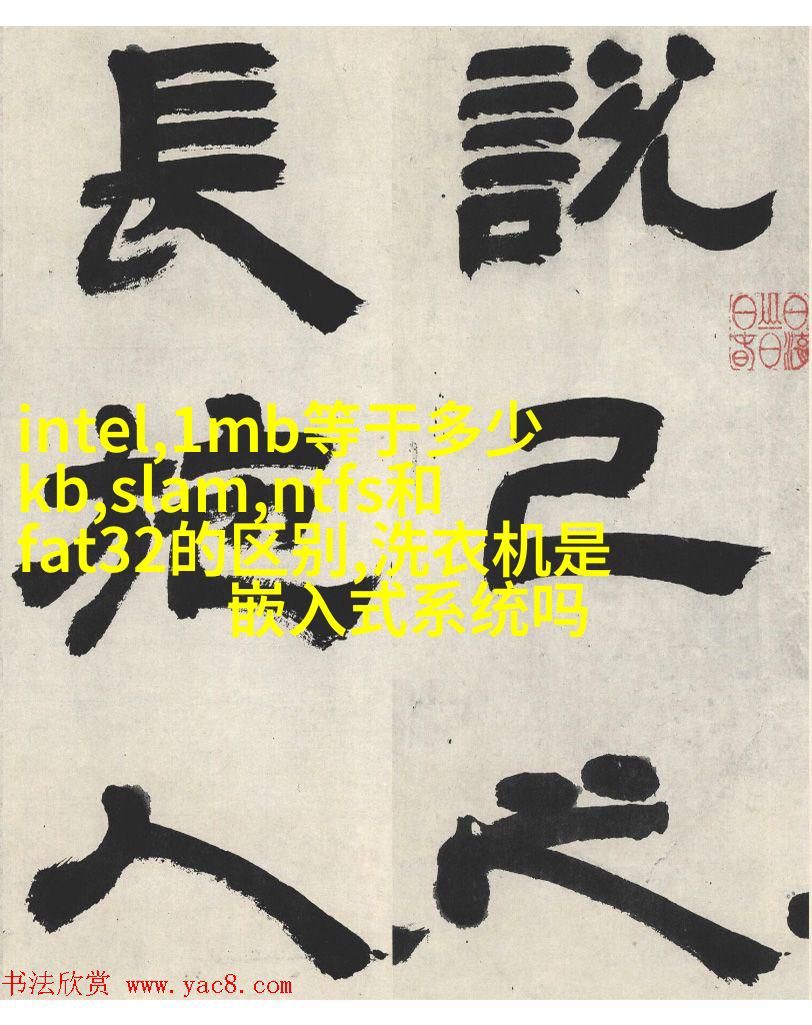 說己之
長施人
intel,1mb等于多少
kb,slam,ntfs和
fat32的区别,洗衣机是
嵌入式系统吗
书法欣赏 www.yac8.com